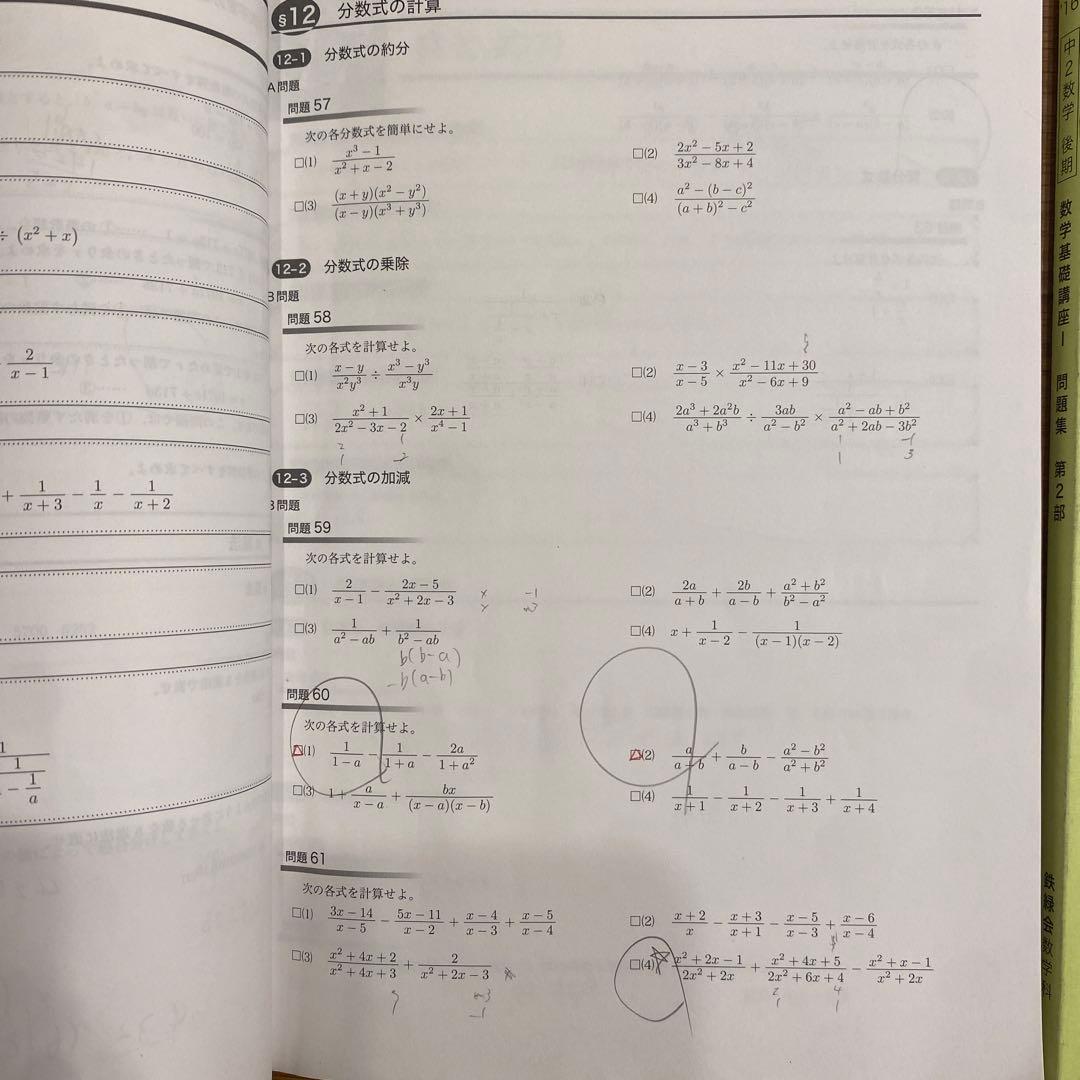 ÷ (x² + x)
2/(x − 1)
+ 1/(x + 3) − 1/x − 1/(x + 2)
§12 分数式の計算
12-1 分数式の約分
A問題
問題57
次の各分数式を簡単にせよ。
□(1) (x³ − 1)/(x² + x − 2)
□(2) (2x² − 5x + 2)/(3x² − 8x + 4)
□(3) ((x + y)(x² − y²))/((x − y)(x³ + y³))
□(4) (a² − (b − c)²)/((a + b)² − c²)
12-2 分数式の乗除
B問題
問題58
次の各式を計算せよ。
□(1) (x − y)/(x²y³) ÷ (x³ − y³)/(x³y)
□(2) (x − 3)/(x − 5) × (x² − 11x + 30)/(x² − 6x + 9)
□(3) (x² + 1)/(2x² − 3x − 2) × (2x + 1)/(x⁴ − 1)
□(4) (2a³ + 2a²b)/(a³ + b³) ÷ 3ab/(a² − b²) × (a² − ab + b²)/(a² + 2ab − 3b²)
2 1
1 −2
1 −1
1 3
12-3 分数式の加減
B問題
問題59
次の各式を計算せよ。
□(1) 2/(x − 1) − (2x − 5)/(x² + 2x − 3)
□(2) 2a/(a + b) + 2b/(a − b) + (a² + b²)/(b² − a²)
□(3) 1/(a² − ab) + 1/(b² − ab)
□(4) x + 1/(x − 2) − 1/((x − 1)(x − 2))
b(b−a)
−b(a−b)
問題60
次の各式を計算せよ。
□(1) 1/(1 − a) − 1/(1 + a) − 2a/(1 + a²)
□(2) a/(a + b) + b/(a − b) − (a² − b²)/(a² + b²)
□(3) 1 + a/(x − a) + bx/((x − a)(x − b))
□(4) 1/(x + 1) − 1/(x + 2) − 1/(x + 3) + 1/(x + 4)
問題61
次の各式を計算せよ。
□(1) (3x − 14)/(x − 5) − (5x − 11)/(x − 2) + (x − 4)/(x − 3) + (x − 5)/(x − 4)
□(2) (x + 2)/x − (x + 3)/(x + 1) − (x − 5)/(x − 3) + (x − 6)/(x − 4)
□(3) (x² + 4x + 2)/(x² + 4x + 3) + 2/(x² + 2x − 3)
□(4) (x² + 2x − 1)/(2x² + 2x) + (x² + 4x + 5)/(2x² + 6x + 4) − (x² + x − 1)/(x² + 2x)
2 4
1 1
'16 中2数学 後期 数学基礎講座Ⅰ 問題集 第2部
鉄緑会数学科